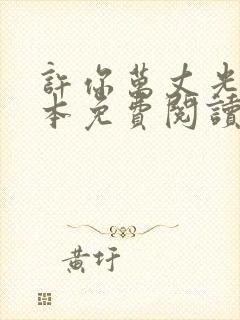 許你萬丈光
本免費閱讀
黃圩